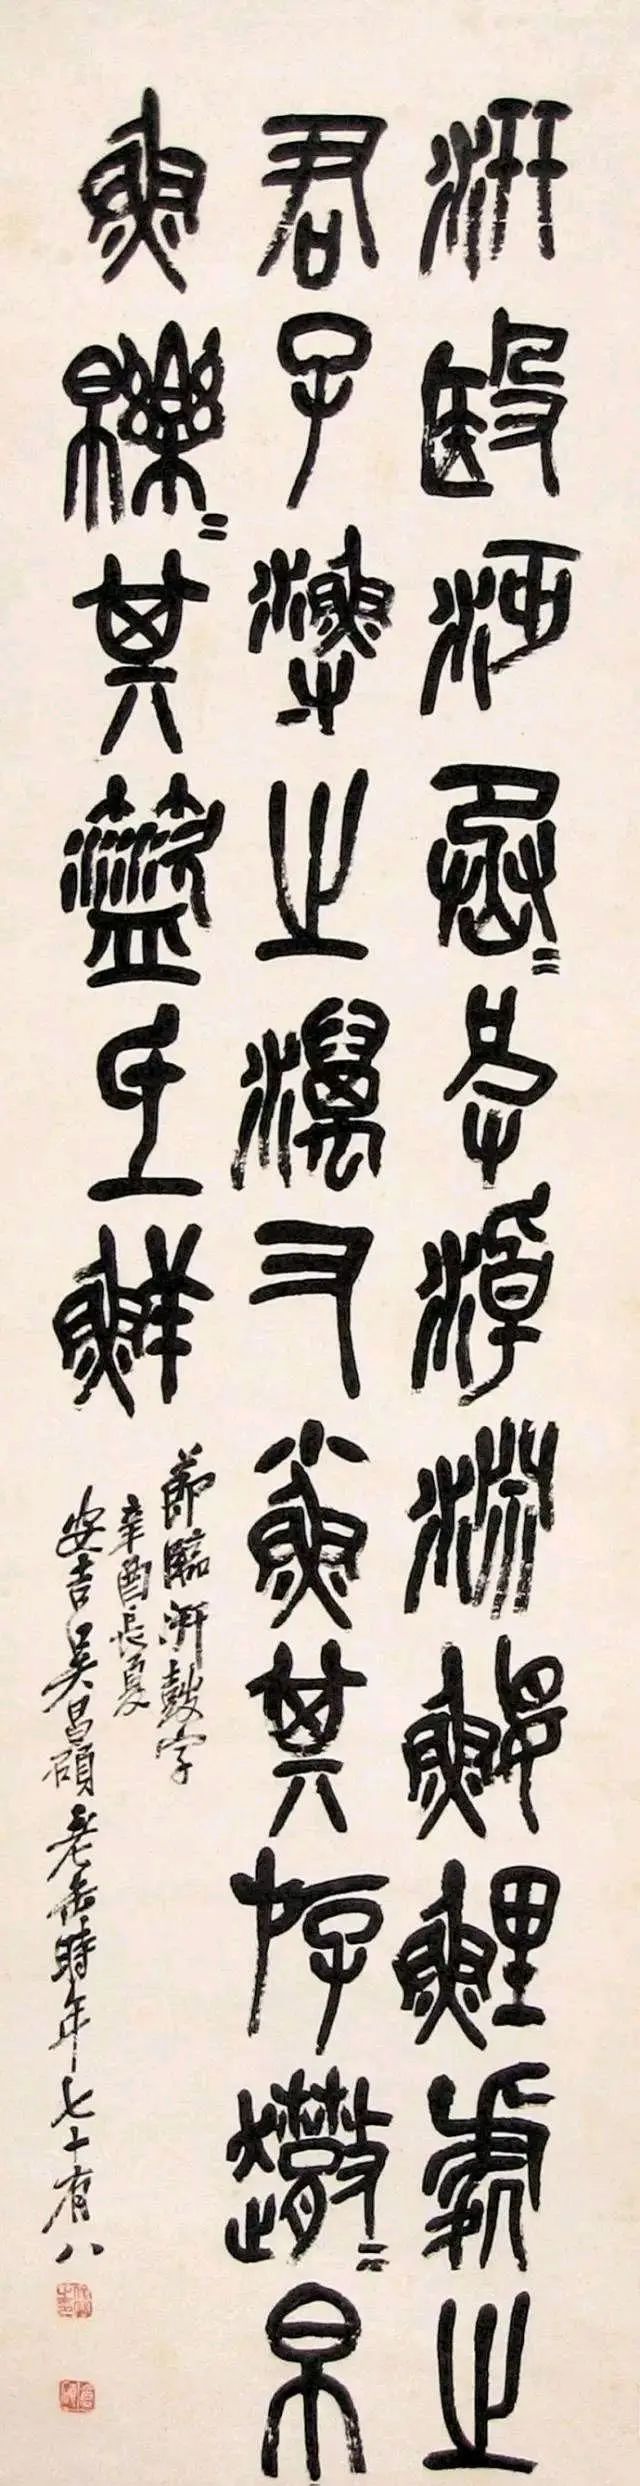 汧殹沔丞=皮淖淵鰋鯉處之
君子漁之濿又小魚其斿帛
魚皪=其盜氐鮮
節臨汧鼓字
辛酉長夏
安吉吳昌碩老缶時年七十有八